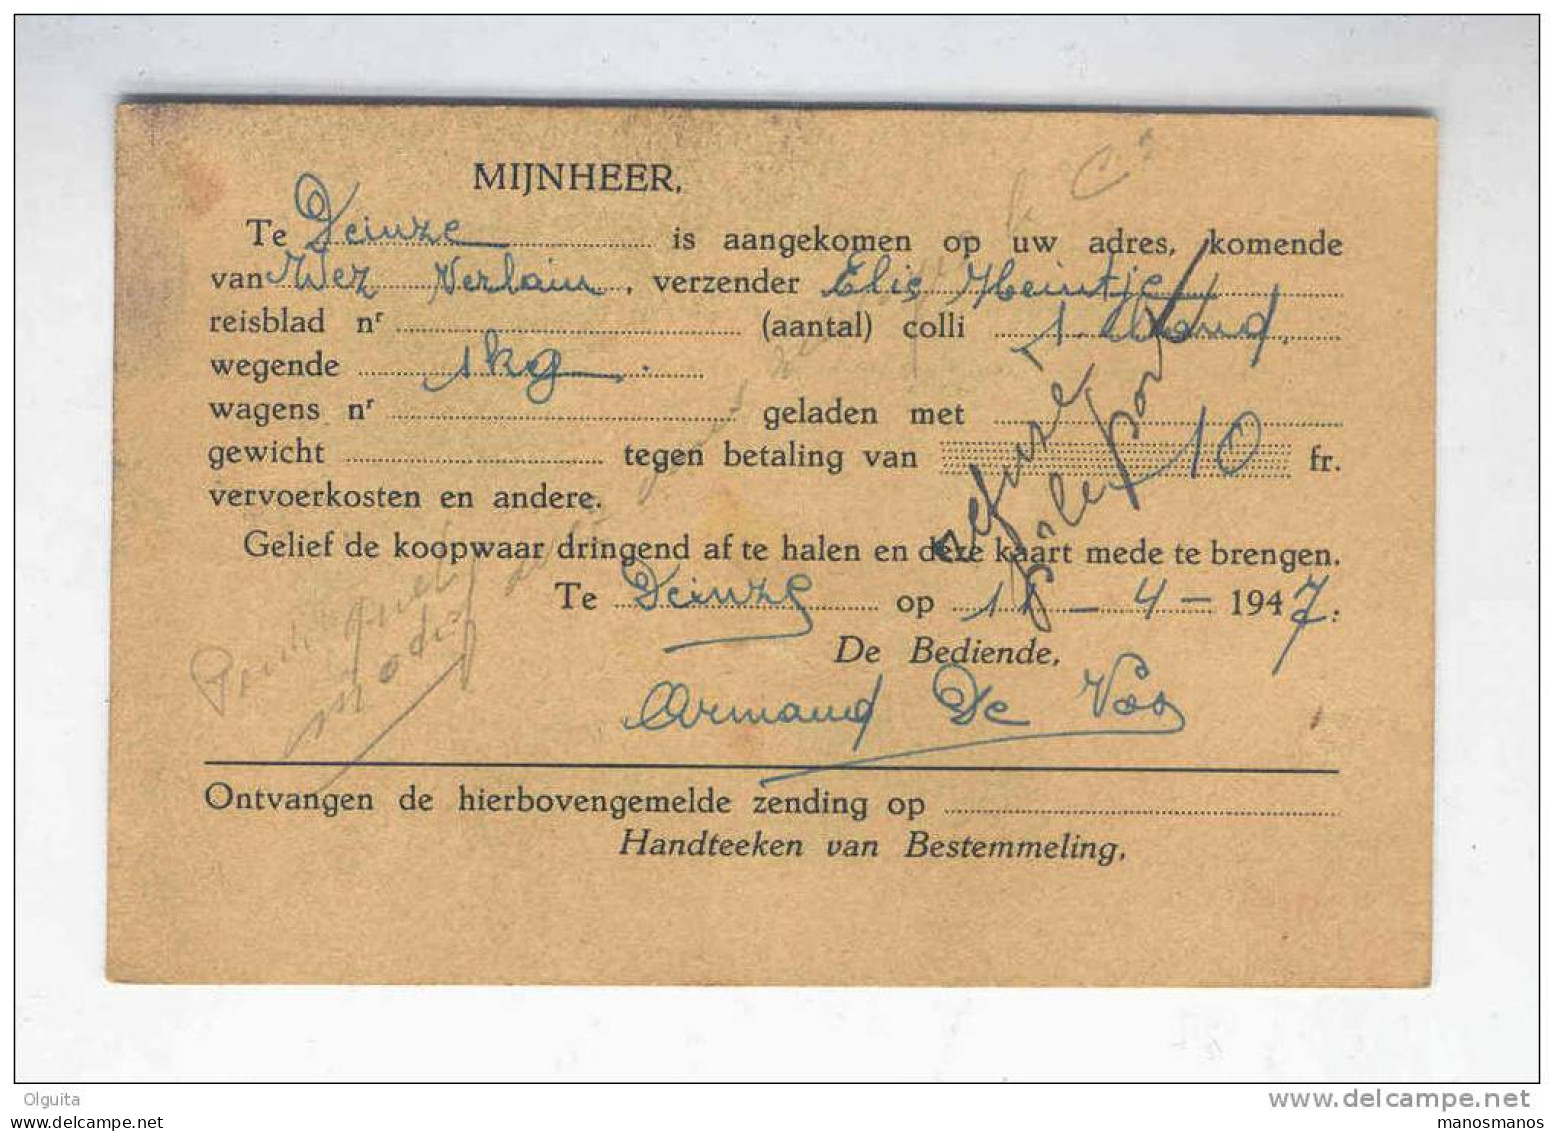 MIJNHEER,
Te Deinze is aangekomen op uw adres, komende
van Wez Verlain, verzender Elis Heintje
reisblad nr (aantal) colli 1
wegende 1 kg.
wagens nr geladen met
gewicht tegen betaling van 10 fr.
vervoerkosten en andere.
refusé
port
Gelief de koopwaar dringend af te halen en deze kaart mede te brengen.
Te Deinze op 11 - 4 - 1947.
De Bediende,
Armand De Vos
Ontvangen de hierbovengemelde zending op
Handteeken van Bestemmeling,
Olguita
www.delcampe.net
manosmanos